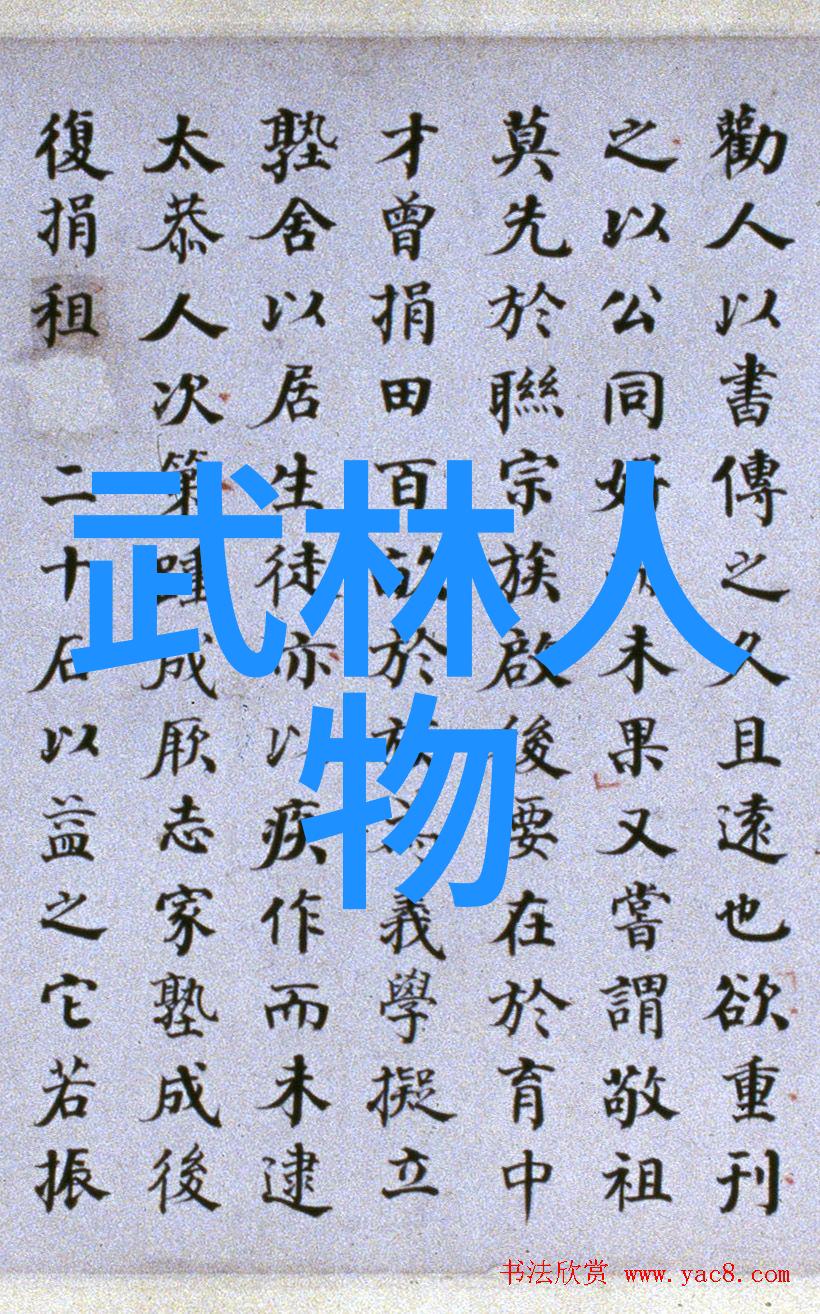 勸人以書傳之久且遠也欲重刊
之以公同好未果又嘗謂敬祖
莫先於聯宗族啟後要在於育中
才曾捐田百畝於族為義學擬立
塾舍以居生徒亦以疾作而未逮
太恭人次第踵成厥志家塾成後
復捐租二十石以益之它若振
武林人
物
书法欣赏 www.yac8.com